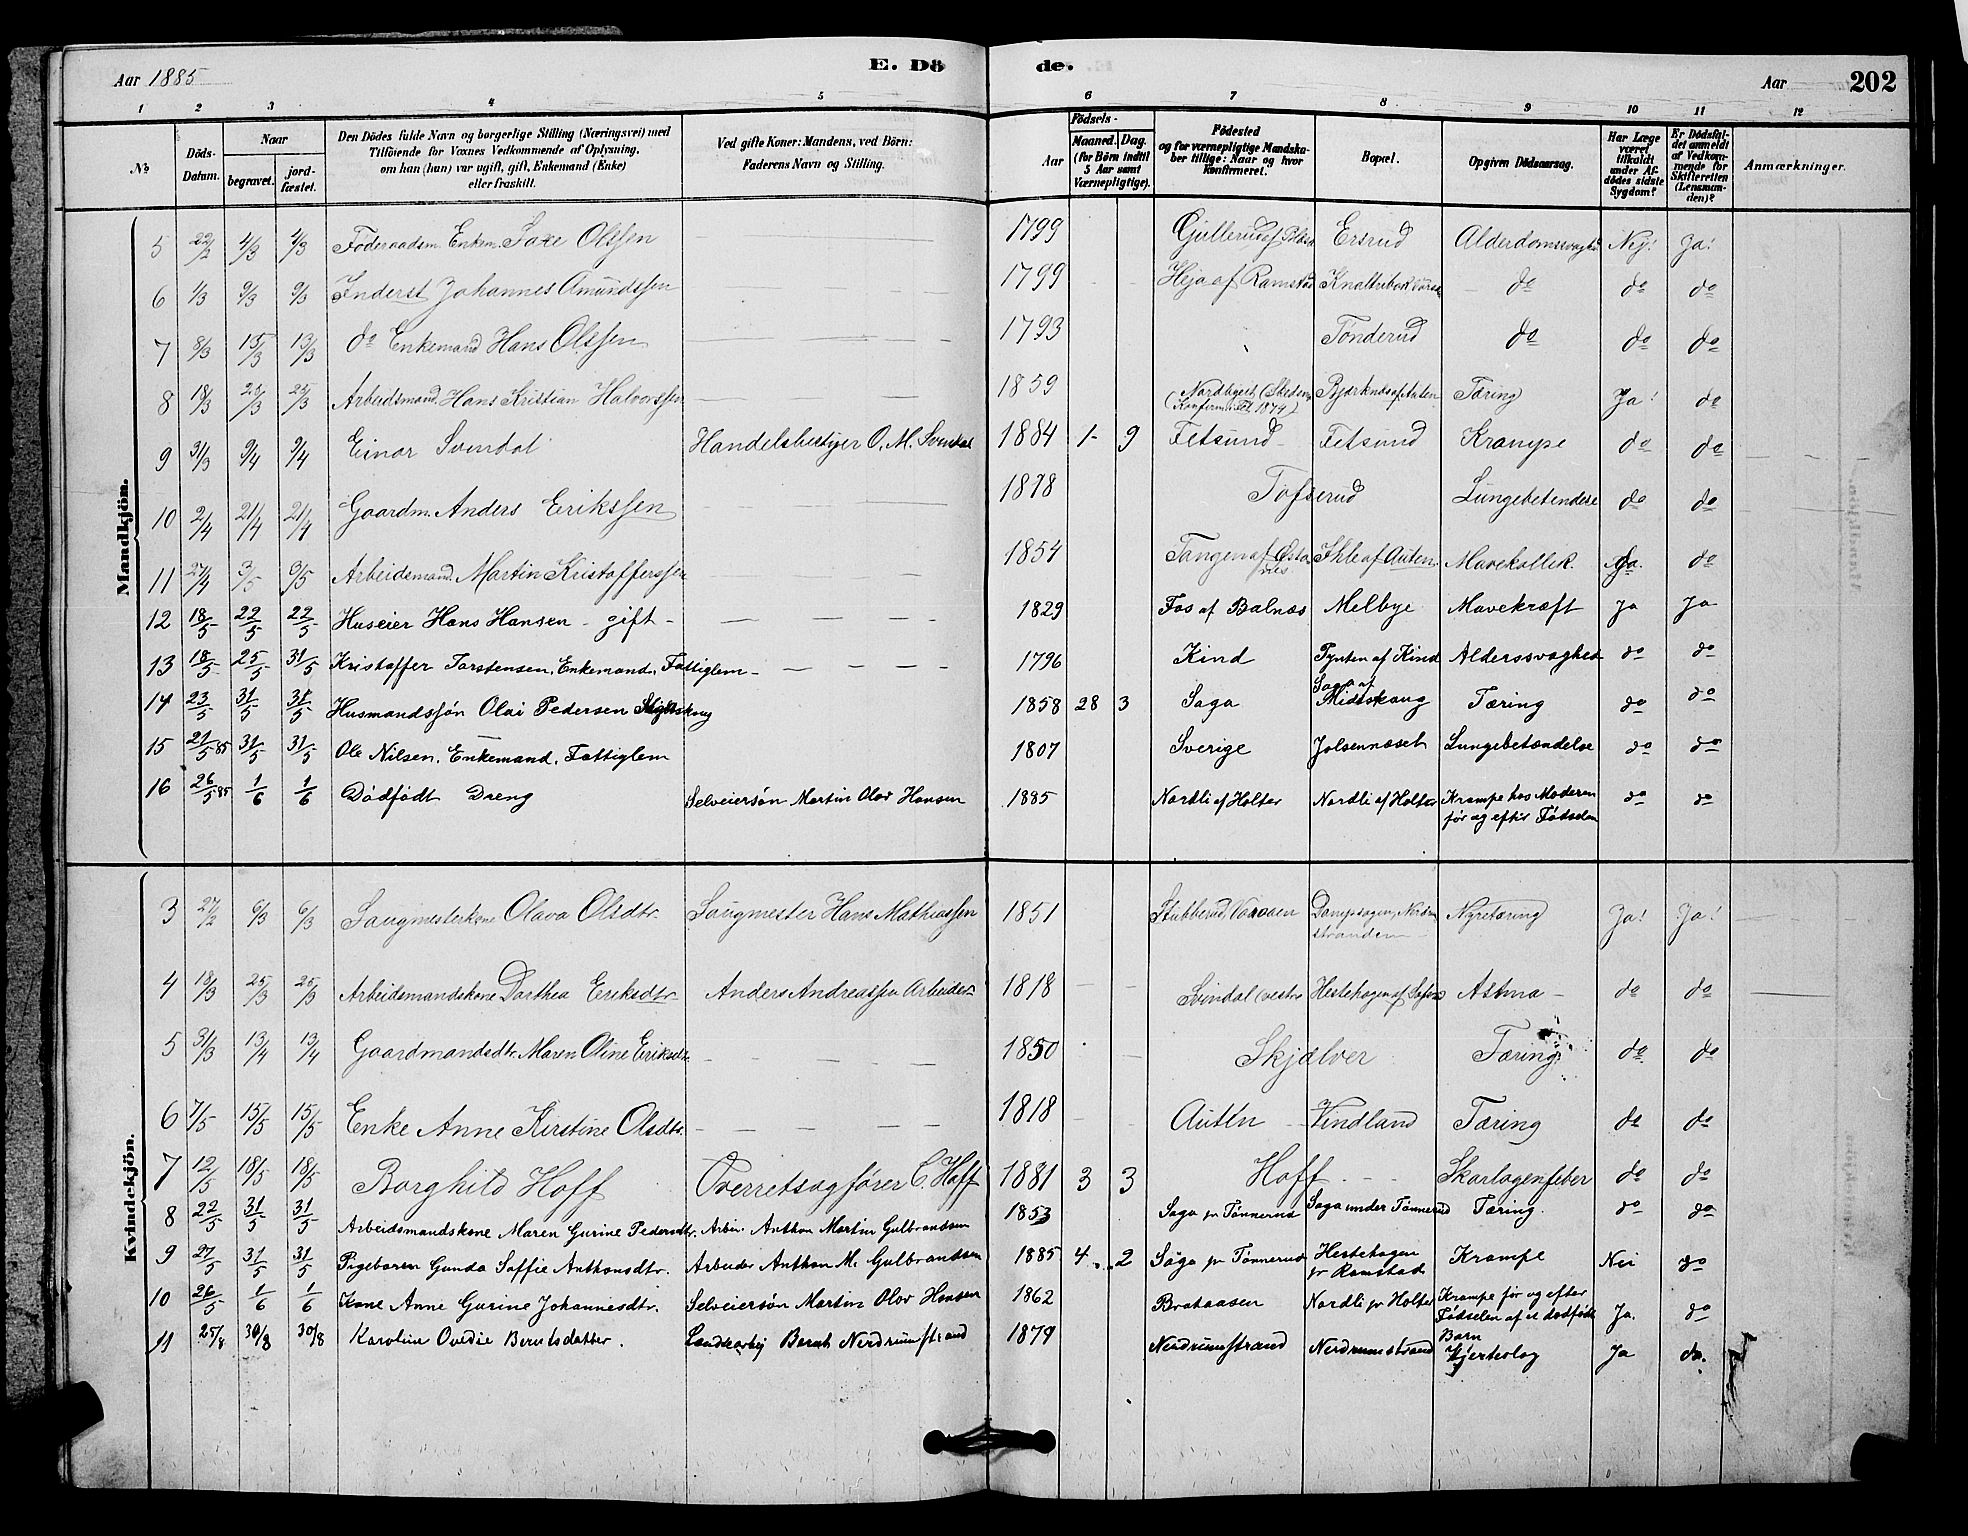 Aar 1885
E. Dö
de.
Aar
202
1 2 3 4 5 6 7 8 9 10 11 12
No
Döds-Datum.
Naar
begravet.
jord-fæstet.
Den Dödes fulde Navn og borgerlige Stilling (Næringsvei) med
Tilföiende for Voxnes Vedkommende af Oplysning,
om han (hun) var ugift, gift, Enkemand (Enke)
eller fraskilt.
Ved gifte Koner: Mandens, ved Börn:
Faderens Navn og Stilling.
Födsels-
Aar
Maaned. Dag.
(for Börn indtil
5 Aar samt
Værnepligtige).
Födested
og for værnepligtige Mandska-
ber tillige: Naar og hvor
konfirmeret.
Bopæl.
Opgiven Dödsaarsag.
Har Læge
været
tilkaldt
under Af-
dödes sidste
Sygdom?
Er Dödsfal-
det anmeldt
af Vedkom-
mende for
Skifteretten
(Lensman-
den)?
Anmærkninger.
Mandkjön.
5 22/2 4/3 4/3 Föderaadsm. Enkem. Saxe Olssen 1799 Gullerud Ersrud Alderdomssvaghed Nej! Ja!
6 1/3 9/3 9/3 Inderst Johannes Amundssen 1799 Heja af Ramstad do do do
7 8/3 15/3 13/3 do Enkemand Hans Olssen 1793 Tönderud do do do
8 18/3 25/3 25/3 Arbeidsmand. Hans Kristian Halvorssen 1859 Bjørknæs af Auten Tæring Ja! do
9 31/3 9/4 9/4 Einar Svendal Handelsbestyer O. M. Svendal 1884 1 9 Fetsund Fetsund Krampe do do
10 2/4 21/4 21/4 Gaardm. Anders Erikssen 1878 Tofserud Lungebetendese do do
11 27/4 9/5 Arbeidsmand. Martin Kristofferssen 1854 Tangen af Ihle af Auten Ja. do
12 18/5 22/5 22/5 Huseier Hans Hansen - gift - 1829 Fos af Balnæs Melbye Mavekræft Ja Ja
13 18/5 25/5 31/5 Kristoffer Torstensen, Enkemand, Fattiglem 1796 Kind Pynten af Kind Alderssvaghed do do
14 23/5 31/5 31/5 Husmandssön Olai Pedersen 1858 28 3 Saga Saga af Midtskaug Tæring do do
15 21/5 85 31/5 31/5 Ole Nilsen, Enkemand, Fattiglem 1807 Sverige Jolsennæset Lungebetændelse do do
16 26/5 85 1/6 1/6 Dödfödt Dreng Selveiersön Martin Olov Hansen 1885 Nordli af Holter Nordli af Holter Krampe hos Moderen
før og efter Fødselen do do
Kvindekjön.
3 27/2 6/3 6/3 Saugmesterkone Olava Olsdtr. Saugmester Hans Mathiassen 1851 Stubberud, Dampsagen, Nerdrum
stranden Nyretæring Ja! Ja!
4 18/3 25/3 25/3 Arbeidsmandskone Dorthea Eriksdtr Anders Andreassen Arbeider 1818 Svindal (vestre Hestehagen af Astma do do
5 31/3 13/4 13/4 Gaardmandsdtr. Maren Oline Eriksdtr. 1850 Skjælver Tæring do do
6 7/5 15/5 15/5 Enke Anne Kirstine Olsdtr. 1818 Auten Vindland Tæring do do
7 12/5 18/5 18/5 Borghild Hoff Overretsagfører C. Hoff 1881 3 3 Hoff Skarlagenfeber do do
8 22/5 31/5 31/5 Arbeidsmandskone Maren Gurine Pedersdtr. Arbm. Anthon Martin Gulbrandsen 1853 Saga pr Tønnerud Saga under Tønnerud Tæring. do do
9 27/5 31/5 31/5 Pigebaren Gunda Soffie Anthonsdtr. Arbeider Anthon M. Gulbrandsen 1885 4 2 Saga pr Tønnerud Hestehagen
pr Ramstad Krampe Nei do
10 26/5 1/6 1/6 Kone Anne Gurine Johannesdtr. Selveiersön Martin Olov Hansen 1862 Brataasen Nordli pr Holter Krampe før og efter
Fødselen af et dødfødt
Barn Ja. do
11 25/8 30/8 30/8 Karoline Ovedie Berntsdatter. Bernt Nerdrumstrand 1879 Nerdrumstrand Nerdrumstrand Hjerteslag Ja do.